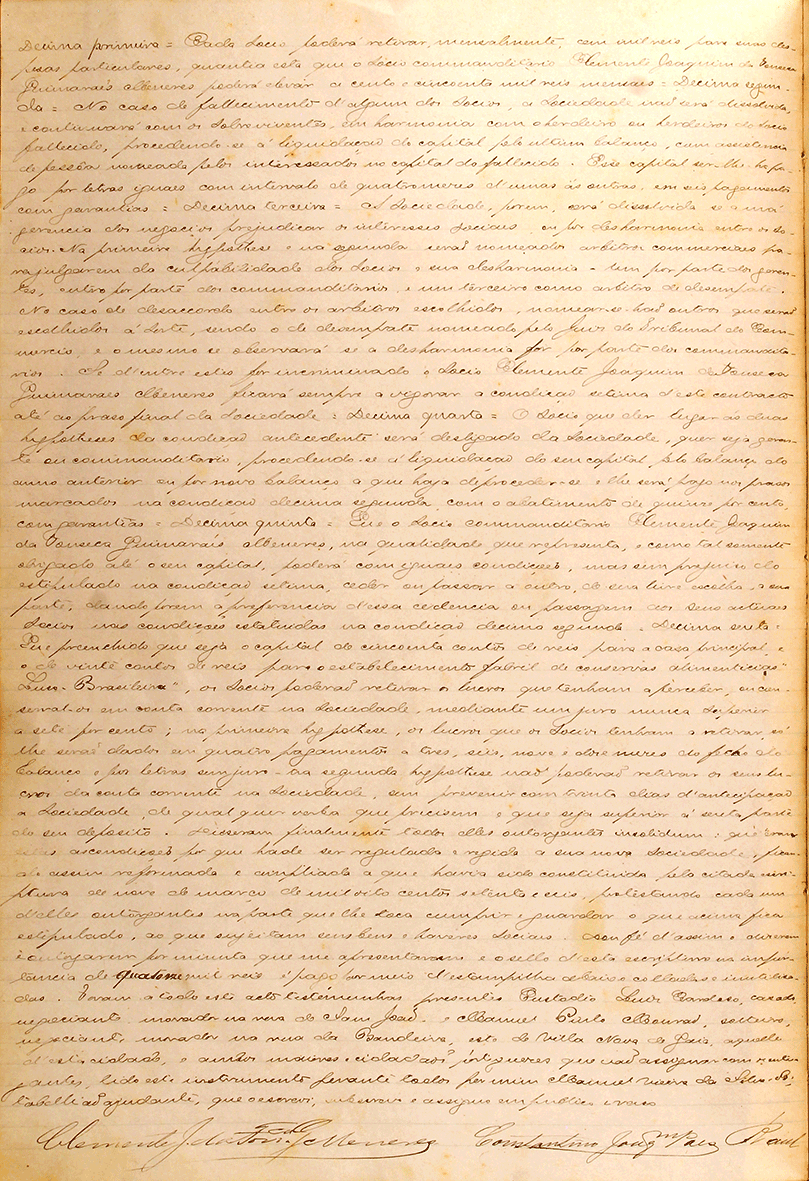 Decima primeira = Cada socio poderá retirar, mensalmente, cem mil reis para suas des-
pesas particulares, quantia esta que o socio commanditario Clemente Joaquim da Fonseca
Guimarães Meneres poderá elevar a cento e cincoenta mil reis mensaes = Decima segun-
da = No caso de fallecimento d'algum dos socios, a sociedade não será dissolvida,
e continuará com os sobreviventes, em harmonia com o herdeiro ou herdeiros do socio
fallecido, procedendo-se á liquidação do capital pelo ultimo balanço, com assistencia
de pessoa nomeada pelos interessados no capital do fallecido. Esse capital ser-lhe-ha pa-
go por letras iguaes com intervalo de quatro mezes d'umas ás outras, em seis pagamentos
com garantias = Decima terceira = A sociedade, porem, será dissolvida se a má
gerencia dos negocios prejudicar os interesses sociaes, ou por desharmonia entre os so-
cios. Na primeira hypothese e na segunda serão nomeados arbitros commerciaes pa-
ra julgarem da culpabilidade dos socios e sua desharmonia - um por parte dos geren-
tes, outro por parte dos commanditarios, e um terceiro como arbitro de desempate.
No caso de desaccordo entre os arbitros escolhidos, nomear-se-hão outros que serão
escolhidos á sorte, sendo o de desempate nomeado pelo Juiz do Tribunal do Com-
mercio, e o mesmo se observará se a desharmonia for por parte dos commandita-
rios. Se d'entre estes for incriminado o socio Clemente Joaquim da Fonseca
Guimarães Meneres ficará sempre a vigorar a condição setima d'este contracto
até ao praso final da sociedade = Decima quarta = O socio que der lugar ás duas
hypotheses da condição antecedente será desligado da sociedade, quer seja geren-
te ou commanditario, procedendo-se á liquidação do seu capital pelo balanço do
anno anterior ou por novo balanço a que haja de proceder-se e lhe será pago nos prasos
marcados na condição decima segunda com o abatimento de quinze por cento,
com garantias = Decima quinta = Que o socio commanditario Clemente Joaquim
da Fonseca Guimarães Meneres, na qualidade que representa, e como tal somente
obrigado até o seu capital, poderá com iguaes condições, mas sem prejuizo do
estipulado na condição setima, ceder ou passar a outro, de sua livre escolha, a sua
parte, dando porem a preferencia d'essa cedencia ou passagem aos seus actuaes
socios nas condições estatuidas na condição decima segunda. Decima sexta =
Que preenchido que seja o capital de cincoenta contos de reis para a casa principal, e
o de vinte contos de reis para o estabelecimento fabril de conservas alimenticias "
Luso-Brasileira", os socios poderão retirar os lucros que tenham a perceber, ou con-
serval-os em conta corrente na sociedade, mediante um juro nunca superior
a sete por cento; na primeira hypothese, os lucros que os socios tenham a retirar, só
lhe serão dados em quatro pagamentos a tres, seis, nove e doze mezes do fecho do
balanço e por letras sem juro - na segunda hypothese não poderão retirar os seus lu-
cros da conta corrente na sociedade, sem prevenir com trinta dias d'anticipação
a sociedade, de qualquer verba que precisem e que seja superior á sexta parte
do seu deposito. Disseram finalmente todos elles outorgantes insolidum: que eram
estas as condições por que hade ser regulada e regida a sua nova sociedade, fican-
do assim reformada e ampliada a que havia sido constituida, pela citada escri-
ptura de nove de março de mil oito centos setenta e seis, protestando cada um
d'elles outorgantes na parte que lhe toca cumprir e guardar o que acima fica
estipulado, ao que sujeitam seus bens e haveres sociaes. Dou fé d'assim o dizerem
e outorgarem por minuta que me apresentaram e o sello d'esta escriptura na impor-
tancia de quatorze mil reis é pago por meio d'estampilha abaixo colladas e inutilisa-
das. Foram a todo este acto testemunhas presentes Eustadio Luiz Cardoso, casado,
negociante, morador na rua de Sam João, e Manuel Pinto Mourão, solteiro,
negociante, morador na rua da Bandeira, este de Villa Nova de Gaia, aquelle
d'esta cidade, e ambos maiores e cidadãos portuguezes que vão assignar com os outor-
gantes, lido este instrumento perante todos por mim Manuel Vieira da Silva
tabellião ajudante, que o escrevi, subscrevi e assigno em publico e raso
Clemente J. da Fon.ca G. Meneres Constantino Joaq.m Paes